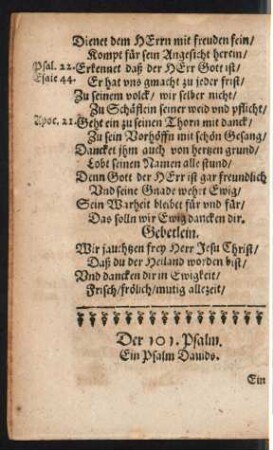 Dienet dem HErrn mit freuden fein/
Kompt für sein Angesicht herein/
Psal. 22. Erkennet daß der HErr Gott ist/
Esaie 44. Er hat vns gmacht zu jeder frist/
Zu seinem volck/ wir selber nicht/
Zu Schäflein seiner weid vnd pflicht/
Apoc. 22. Geht ein zu seinen Thorn mit danck/
Zu sein Vorhöffn mit schön Gesang/
Dancket jhm auch von hertzen grund/
Lobt seinen Namen alle stund/
Denn Gott der HErr ist gar freundlich
Vnd seine Gnade wehrt Ewig/
Sein Warheit bleibet für vnd für/
Das solln wir Ewig dancken dir.
Gebetlein.
Wir jauchtzen frey Herr Jesu Christ/
Daß du der Heiland worden bist/
Vnd dancken dir in Ewigkeit/
Frisch/ frölich/ mutig allezeit/
Der 101. Psalm.
Ein Psalm Dauids.
Ein